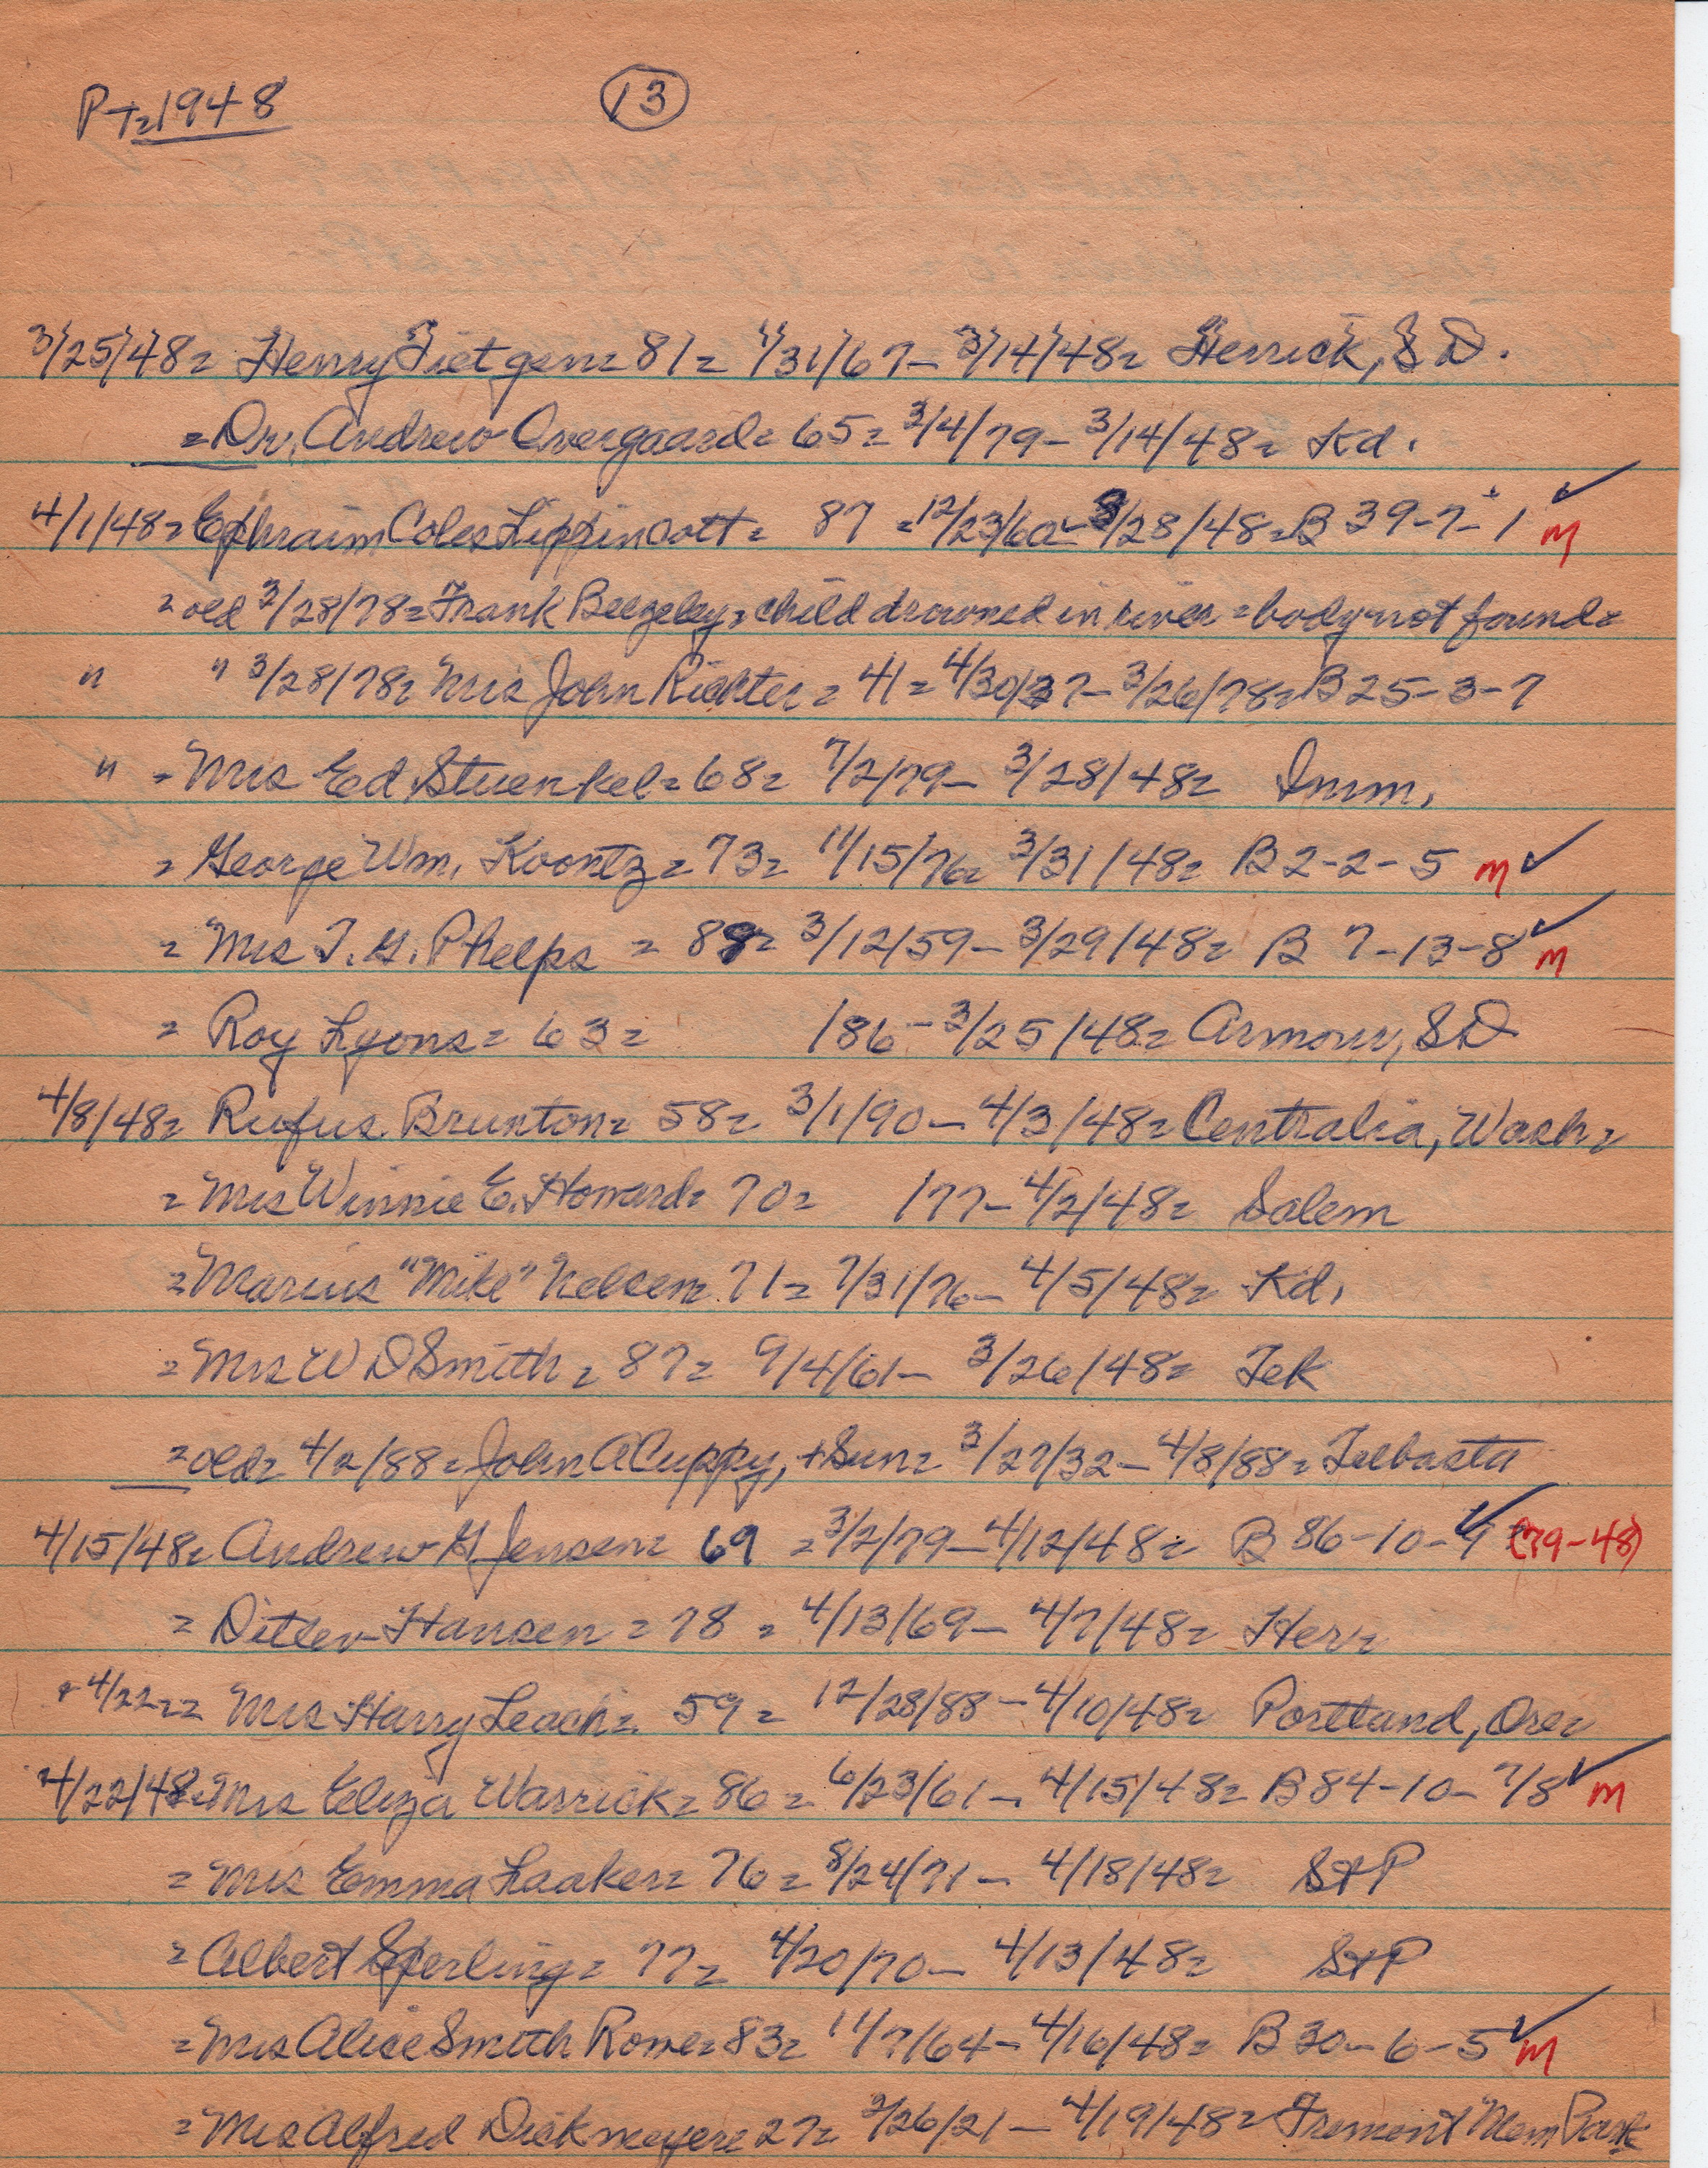 PT=1948 (13)
3/25/48= Henry Tietgen= 81= 1/31/67- 3/14/48= Herrick, S D.
= Dr. Andrew Overgaard= 65= 3/4/79- 3/14/48= Kd.
4/1/48= Ephraim Coles Lippincott= 87 =12/23/60- 3/28/48= B 39-7-1 ✓ M
= old 3/28/78= Frank Beezeley, child drowned in river = body not found=
" " 3/28/78= Mrs John Richter= 41= 4/30/37- 3/26/78= B 25-3-7
" = Mrs Ed Stuenkel= 68= 7/2/79- 3/28/48= Imm.
= George Wm. Koontz= 73= 11/15/76= 3/31/48= B 2-2-5 M ✓
= Mrs T. G. Phelps = 89= 3/12/59- 3/29/48= B 7-13-8 ✓ M
= Roy Lyons= 63= /86- 3/25/48= Armour, SD
4/8/48= Rufus Brunton= 58= 3/1/90- 4/3/48= Centralia, Wash=
= Mrs Winnie E. Howard= 70= /77- 4/2/48= Salem
= Marius "Mike" Nelsen= 71= 7/31/76- 4/5/48= Kd.
= Mrs W D Smith= 87= 9/4/61- 3/26/48= Tek
= old= 4/2/88= John A Cuppy, + Sun= 3/27/32- 4/8/88= Talbasta
4/15/48= Andrew G Jensen= 69 =3/2/79- 4/12/48= B 86-10-9 ✓ (79-48)
= Ditlev Hansen= 78= 4/13/69- 4/7/48= Her=
+ 4/22== Mrs Harry Leach= 59= 12/28/88- 4/10/48= Portland, Ore=
4/22/48= Mrs Eliza Warrick= 86= 6/23/61- 4/15/48= B 84-10-7/8 ✓ M
= Mrs Emma Laaker= 76= 8/24/71- 4/18/48= St P
= Albert Sperling= 77= 4/20/70- 4/13/48= St P
= Mrs Alice Smith Rowe= 83= 11/7/64- 4/16/48= B 30-6-5 ✓ M
= Mrs Alfred Dickmeyer= 27= 2/26/21- 4/19/48= Fremont Mem Park